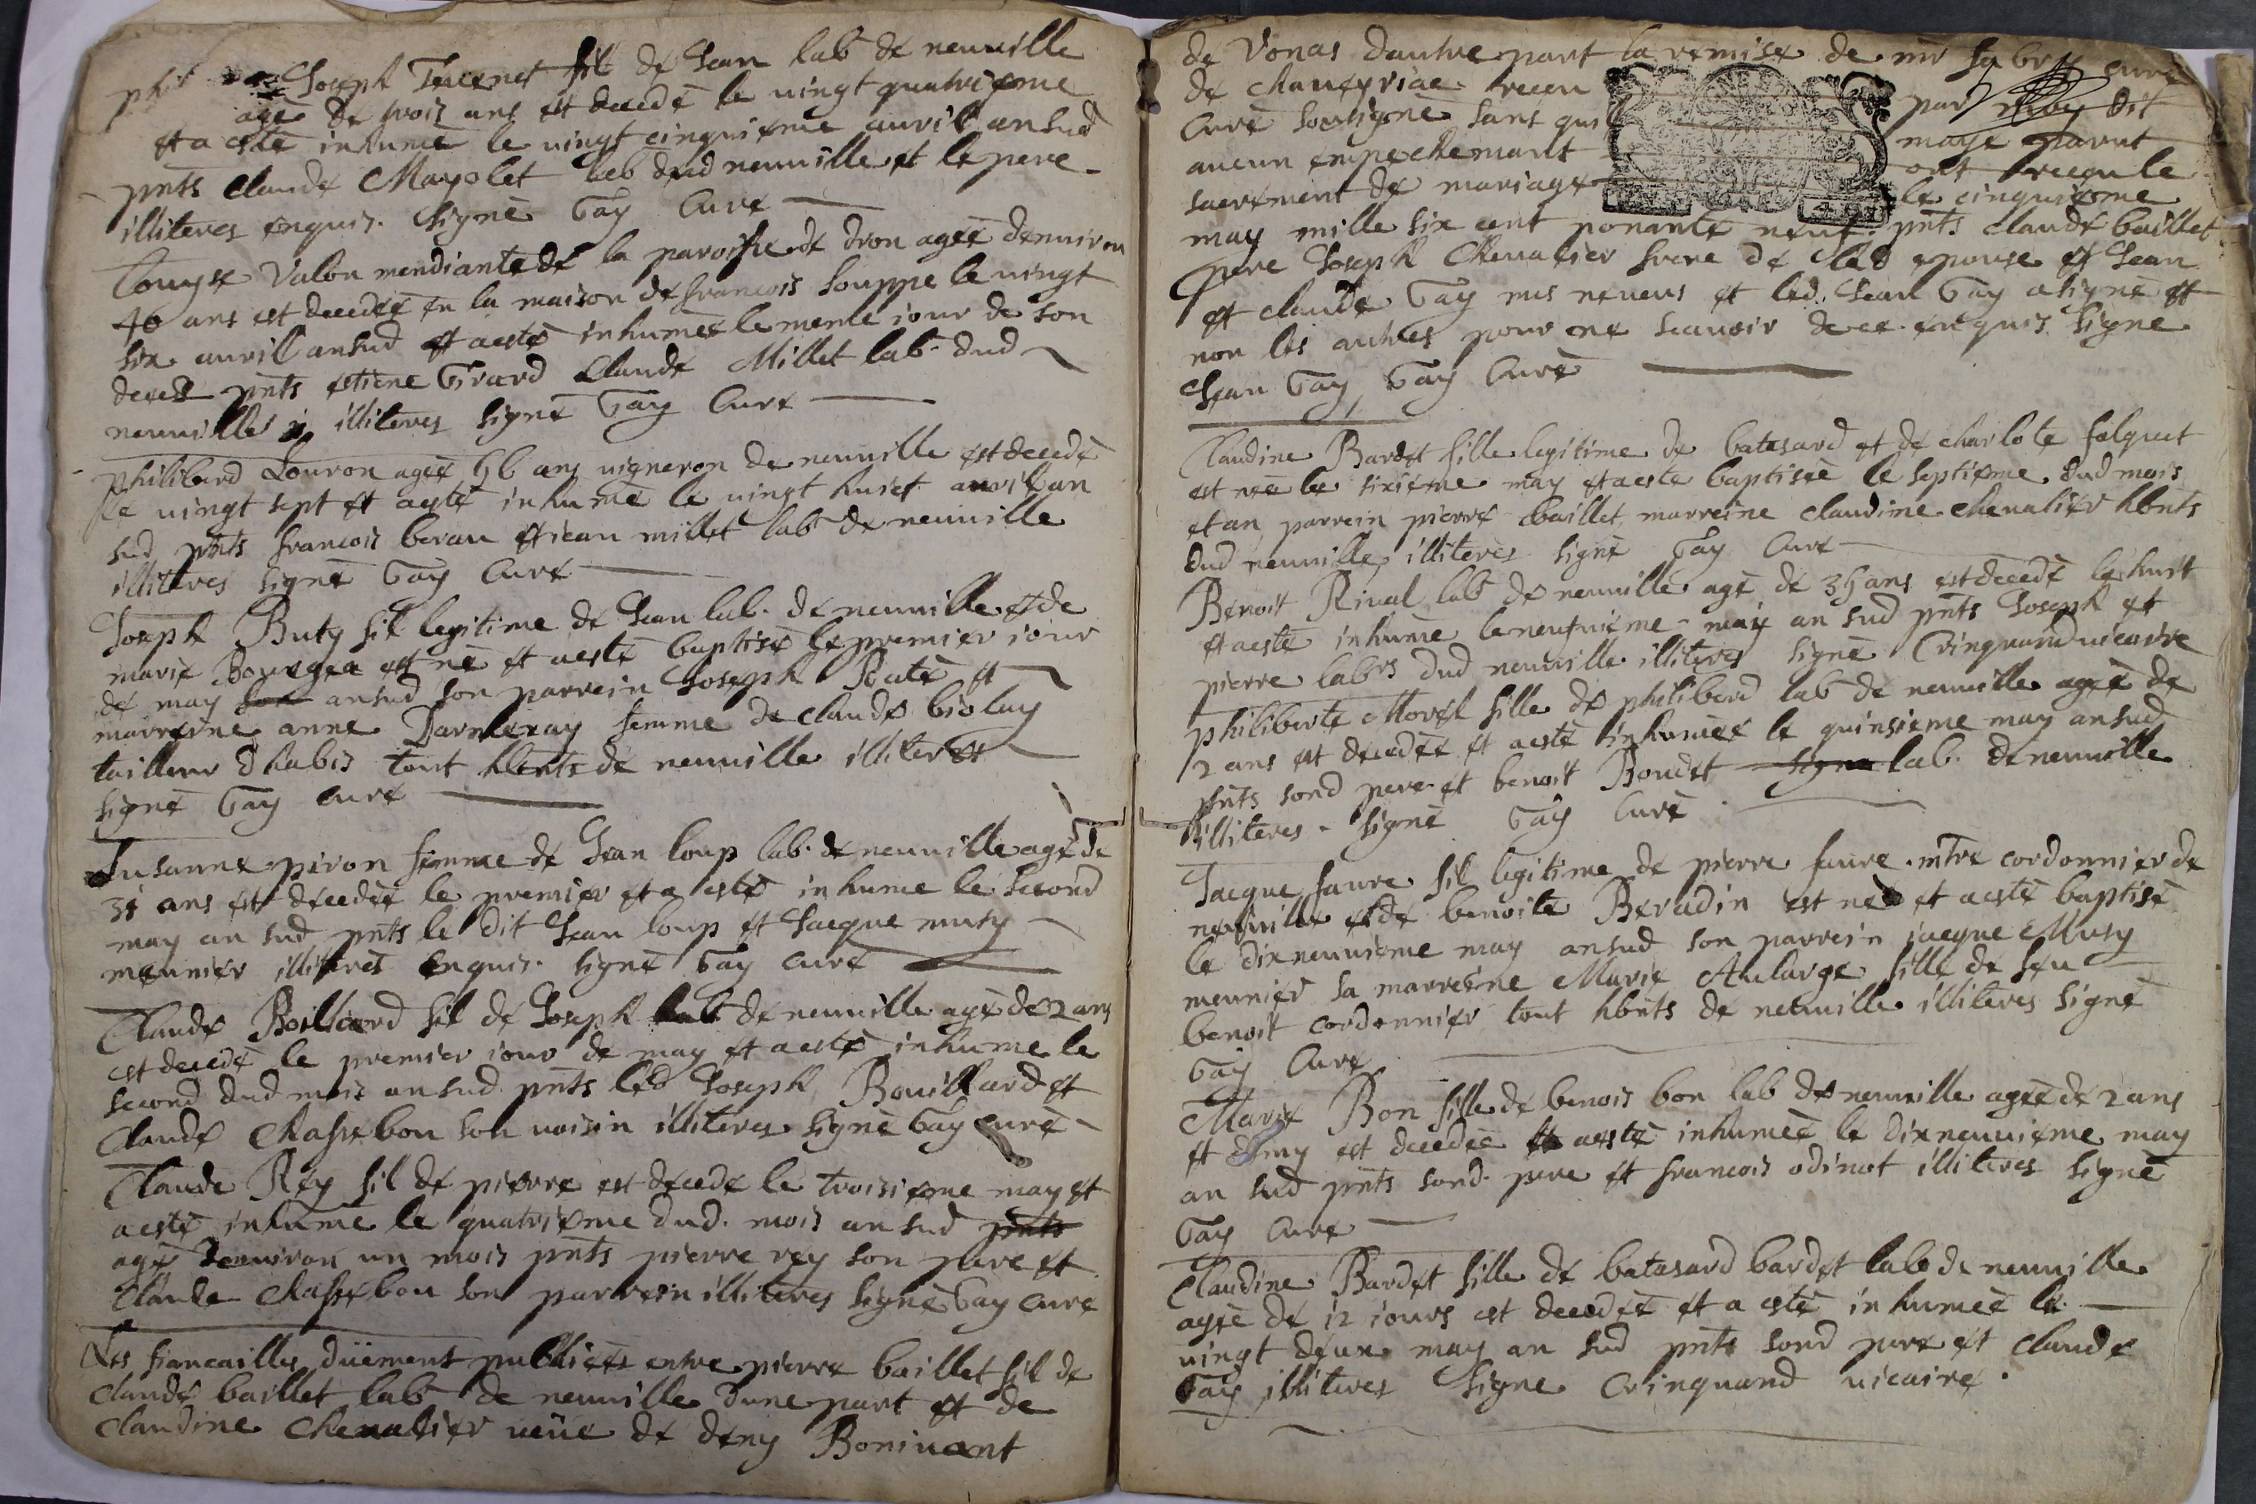 phil Joseph Tevenet fils de Jean lab de neuville
agé de trois ans est decedé le vingt quatrieme
et a esté inhumé le vingt cinquieme auril an sud
pnts claude Mayolet lab dud neuuille et le pere
illiteres enquis. Signé Gay Curé
Louyse Valon mendiante de la paroisse de dron agée denuiron
40 ans est decedée en la maison de francois souppe le vingt
six auril an sud et a esté inhumée le meme iour de son
deces pnts etiene Girard Claude Millet lab. dud
neuuille illiteres signé Gay Curé
Philiberd Louron agée 56 ans uigneron de neuuille est decedé
le uingt sept et a esté inhumé le uingt huict auril an
sud pnts francois beran et iean millet lab de neuuille
illiteres signé Gay Curé
Joseph Buty fil legitime de Jean lab. de neuuille et de
marie Bourgea est né et a esté baptisé le premier iour
de may an sud son parrein Joseph Raté et
marreine anne femme de claude bioluy
tailleur dhabis tout hbnts de neuuille illiteres
signé Gay curé
Susanne piron femme de Jean loup lab. de neuuille agé de
35 ans est decedée le premier et a esté inhumé le second
may an sud, pnts le dit Jean loup et Jacque musy
meunier illiteres enquis. signé Gay curé
Claude Boilliard fil de Joseph lab de neuuille agé de 2 ans
est decedé le premier iour de may et a esté inhumé le
second dud mois an sud. pnts led Joseph Bouillard et
Claude Chassebon son uoisin illiteres signé Gay curé
Claude Rey fil de pierre est decedé le troisieme may et
a esté inhumé le quatrieme dud. mois an sud pnts
agé denuiron un mois pnts pierre rey son pere et
Claude Chassebon son parrein illiteres signé Gay curé
Les fiancailles düement publiées entre pierre baillet fil de
claude baillet lab de neuuille dune part et de
claudine Cheualier ueüe de deny Boniuant
de Vonas dautre part la remise de mr curé
de chaneyriac receu par dit
Curé soubsigné sans quil maye parut
aucun empechemant ont receu le
sacrement de mariage le cinquieme
may mille six cent nonante neuf. pnts. claude baillet
pere Joseph Cheualier frere de lad epouse et Jean
et claude Gay mes neueus et led. Jean Gay a signé et
non les autres pour ne scauoir de ce enquis. signé
Jean Gay, Gay Curé
Claudine Bardet fille legitime de batasard et de charlote folquet
est née le sixieme may et a esté baptisée le septieme dud mois
et an, parrein pierre baillet, marreine claudine cheualier hbnts
dud neuuille, illiteres signé Gay Curé
Benoit Riual lab de neuuille agé de 35 ans est decedé le huit
et a esté inhumé le neufuieme may an sud pnts Joseph et
pierre labrs dud neuuille illiteres signé Cringuand uicaire
Philiberte Morel fille de philiberd lab de neuuille agée de
2 ans est decedée et a esté inhumée le quinsieme may an sud
pnts sond pere et benoit Boudet signé lab. de neuuille
illiteres. signé Gay Curé
Jacque faure fil legitime de pierre faure mtre cordonnier de
neuuille et de benoite Beradin est né et a esté baptisé
le dixneuuieme may an sud son parrein iacque Musy
meunier sa marreine Marie Aularge fille de feu
benoit cordonnier tout hbnts de neuuille illiteres signé
Gay Curé
Marie Bon fille de benois bon lab de neuuille agée de 2 ans
et demy est decedée et a esté inhumée le dixneuuieme may
an sud pnts sond. pere et francois odinot illiteres signé
Gay Curé
Claudine Bardet fille de batasard bardet lab de neuuille
agée de 12 iours est decedée et a esté inhumée le
uingt deux may an sud pnts sond pere et claude
Gay illiteres signé Cringuand uicaire.